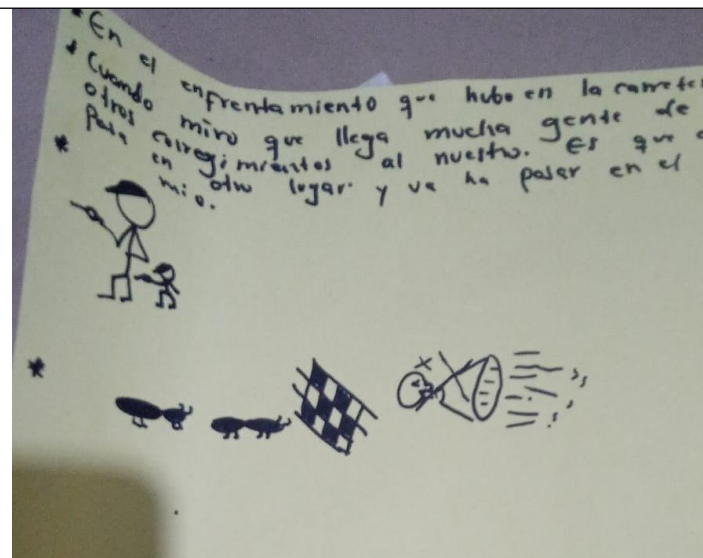 * En el enfrentamiento que hubo en la carrete
* Cuando miro que llega mucha gente de
otros corregimientos al nuestro. Es que
pasa en otro lugar y va ha pasar en el
mio.